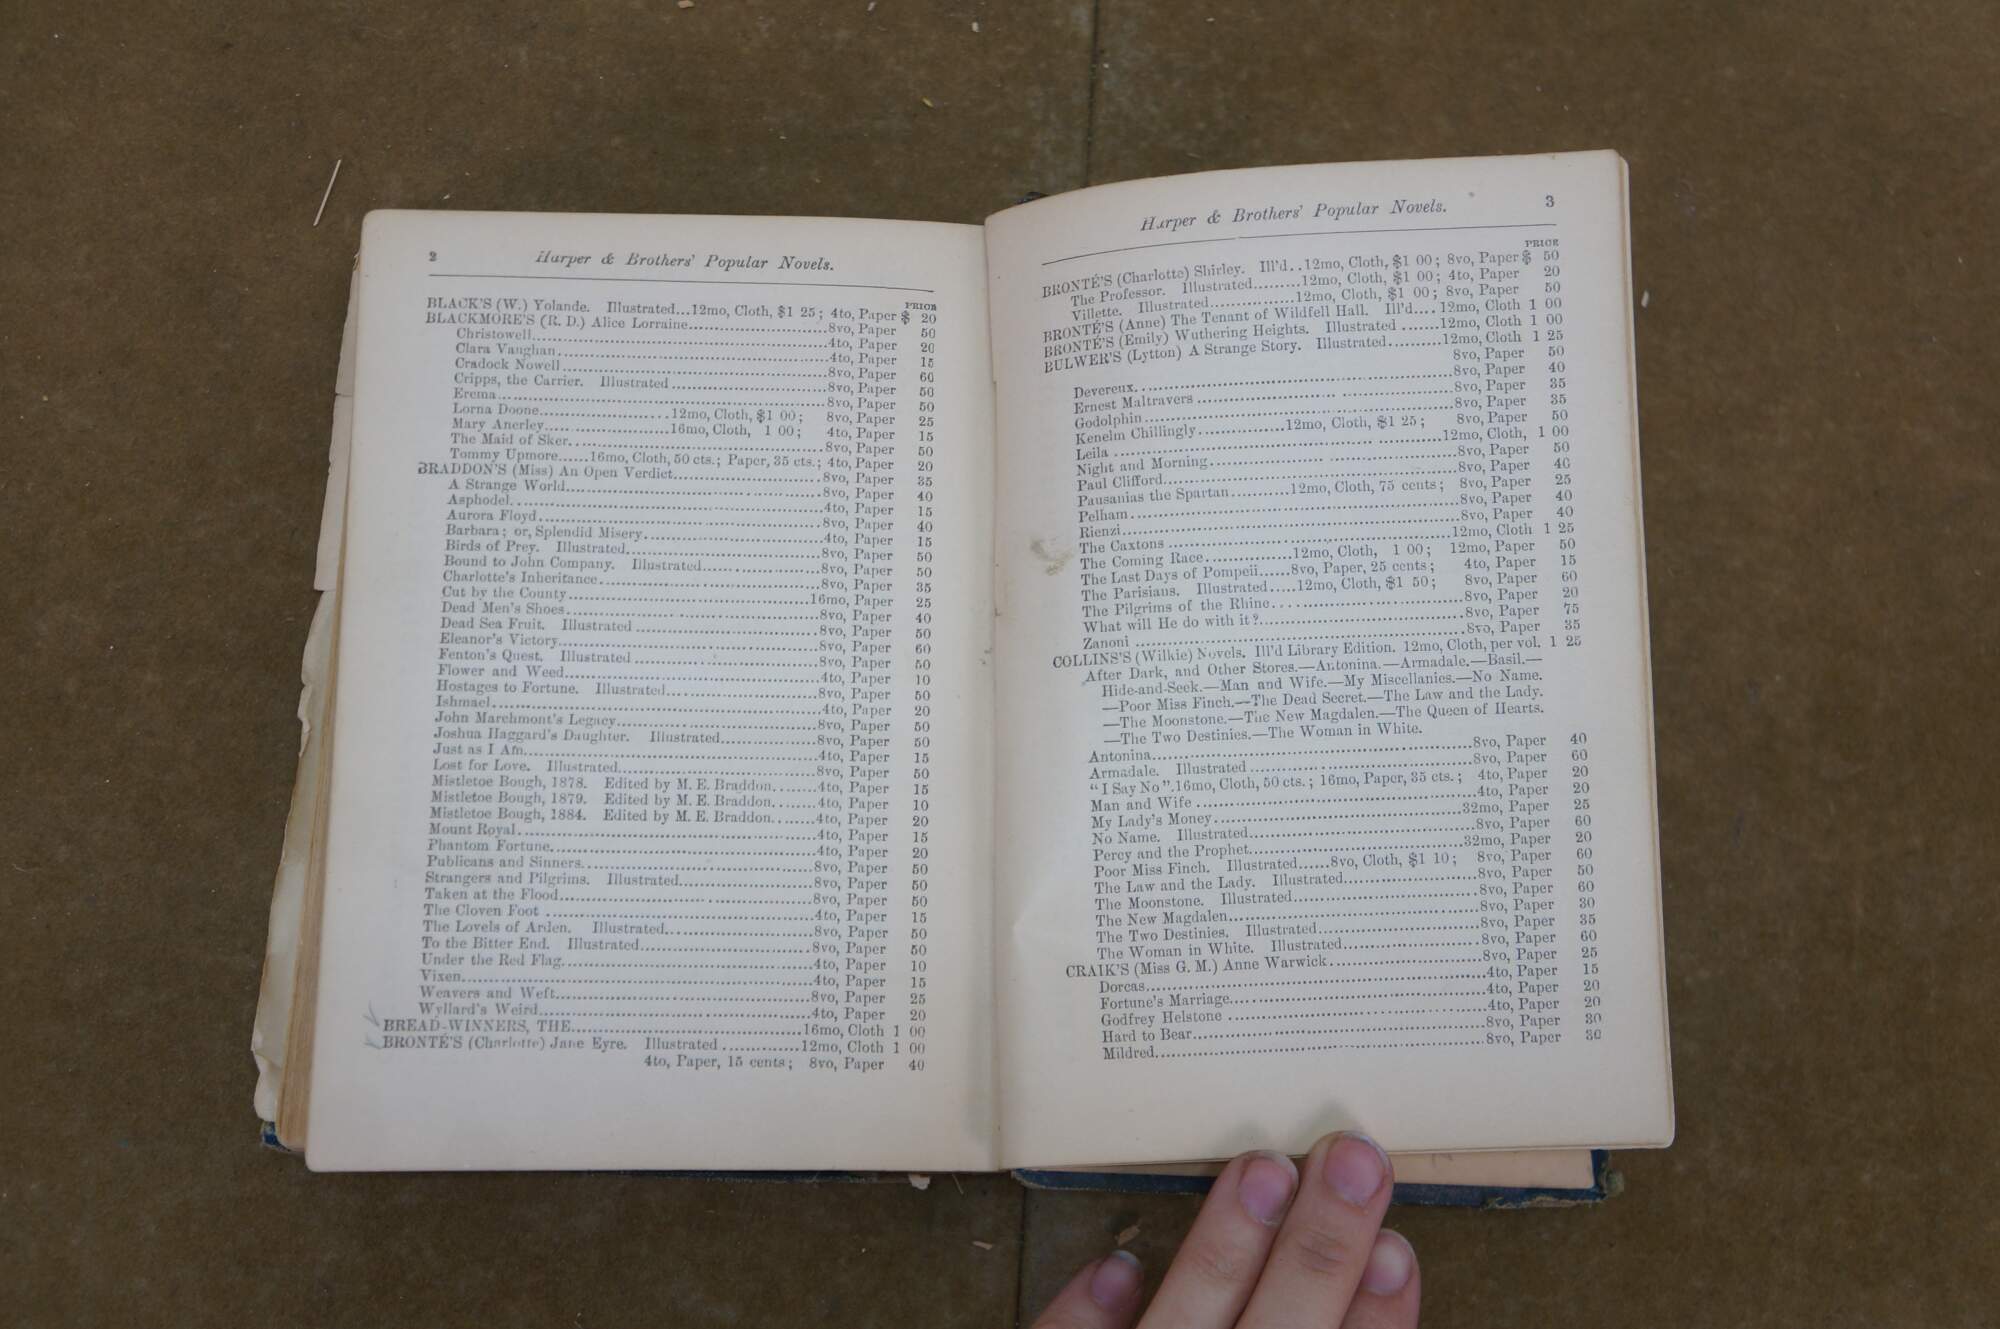 2 Harper & Brothers' Popular Novels.
PRICE
BLACK'S (W.) Yolande. Illustrated...12mo, Cloth, $1 25; 4to, Paper $ 20
BLACKMORE'S (R. D.) Alice Lorraine........8vo, Paper 50
Christowell........4to, Paper 20
Clara Vaughan........4to, Paper 15
Cradock Nowell........8vo, Paper 60
Cripps, the Carrier. Illustrated........8vo, Paper 50
Erema........8vo, Paper 50
Lorna Doone........12mo, Cloth, $1 00; 8vo, Paper 25
Mary Anerley........16mo, Cloth, 1 00; 4to, Paper 15
The Maid of Sker........8vo, Paper 50
Tommy Upmore.....16mo, Cloth, 50 cts.; Paper, 35 cts.; 4to, Paper 20
BRADDON'S (Miss) An Open Verdict........8vo, Paper 35
A Strange World........8vo, Paper 40
Asphodel........4to, Paper 15
Aurora Floyd........8vo, Paper 40
Barbara; or, Splendid Misery........4to, Paper 15
Birds of Prey. Illustrated........8vo, Paper 50
Bound to John Company. Illustrated........8vo, Paper 50
Charlotte's Inheritance........8vo, Paper 35
Cut by the County........16mo, Paper 25
Dead Men's Shoes........8vo, Paper 40
Dead Sea Fruit. Illustrated........8vo, Paper 50
Eleanor's Victory........8vo, Paper 60
Fenton's Quest. Illustrated........8vo, Paper 50
Flower and Weed........4to, Paper 10
Hostages to Fortune. Illustrated........8vo, Paper 50
Ishmael........4to, Paper 20
John Marchmont's Legacy........8vo, Paper 50
Joshua Haggard's Daughter. Illustrated........8vo, Paper 50
Just as I Am........4to, Paper 15
Lost for Love. Illustrated........8vo, Paper 50
Mistletoe Bough, 1878. Edited by M. E. Braddon.......4to, Paper 15
Mistletoe Bough, 1879. Edited by M. E. Braddon.......4to, Paper 10
Mistletoe Bough, 1884. Edited by M. E. Braddon.......4to, Paper 20
Mount Royal........4to, Paper 15
Phantom Fortune........4to, Paper 20
Publicans and Sinners........8vo, Paper 50
Strangers and Pilgrims. Illustrated........8vo, Paper 50
Taken at the Flood........8vo, Paper 50
The Cloven Foot........4to, Paper 15
The Lovels of Arden. Illustrated........8vo, Paper 50
To the Bitter End. Illustrated........8vo, Paper 50
Under the Red Flag........4to, Paper 10
Vixen........4to, Paper 15
Weavers and Weft........8vo, Paper 25
Wyllard's Weird........4to, Paper 20
BREAD-WINNERS, THE........16mo, Cloth 1 00
BRONTÉ'S (Charlotte) Jane Eyre. Illustrated........12mo, Cloth 1 00
4to, Paper, 15 cents; 8vo, Paper 40
Harper & Brothers' Popular Novels. 3
PRICE
BRONTÉ'S (Charlotte) Shirley. Ill'd..12mo, Cloth, $1 00; 8vo, Paper $ 50
The Professor. Illustrated........12mo, Cloth, $1 00; 4to, Paper 20
Villette. Illustrated........12mo, Cloth, $1 00; 8vo, Paper 50
BRONTÉ'S (Anne) The Tenant of Wildfell Hall. Ill'd....12mo, Cloth 1 00
BRONTÉ'S (Emily) Wuthering Heights. Illustrated.......12mo, Cloth 1 00
BULWER'S (Lytton) A Strange Story. Illustrated........12mo, Cloth 1 25
8vo, Paper 50
Devereux........8vo, Paper 40
Ernest Maltravers........8vo, Paper 35
Godolphin........8vo, Paper 35
Kenelm Chillingly........12mo, Cloth, $1 25; 8vo, Paper 50
Leila........12mo, Cloth, 1 00
Night and Morning........8vo, Paper 50
Paul Clifford........8vo, Paper 40
Pausanias the Spartan........12mo, Cloth, 75 cents; 8vo, Paper 25
Pelham........8vo, Paper 40
Rienzi........8vo, Paper 40
The Caxtons........12mo, Cloth 1 25
The Coming Race........12mo, Cloth, 1 00; 12mo, Paper 50
The Last Days of Pompeii......8vo, Paper, 25 cents; 4to, Paper 15
The Parisians. Illustrated.....12mo, Cloth, $1 50; 8vo, Paper 60
The Pilgrims of the Rhine........8vo, Paper 20
What will He do with it?........8vo, Paper 75
Zanoni........8vo, Paper 35
COLLINS'S (Wilkie) Novels. Ill'd Library Edition. 12mo, Cloth, per vol. 1 25
After Dark, and Other Stores.—Antonina.—Armadale.—Basil.—
Hide-and-Seek.—Man and Wife.—My Miscellanies.—No Name.
—Poor Miss Finch.—The Dead Secret.—The Law and the Lady.
—The Moonstone.—The New Magdalen.—The Queen of Hearts.
—The Two Destinies.—The Woman in White.
Antonina........8vo, Paper 40
Armadale. Illustrated........8vo, Paper 60
"I Say No".16mo, Cloth, 50 cts.; 16mo, Paper, 35 cts.; 4to, Paper 20
Man and Wife........4to, Paper 20
My Lady's Money........32mo, Paper 25
No Name. Illustrated........8vo, Paper 60
Percy and the Prophet........32mo, Paper 20
Poor Miss Finch. Illustrated......8vo, Cloth, $1 10; 8vo, Paper 60
The Law and the Lady. Illustrated........8vo, Paper 50
The Moonstone. Illustrated........8vo, Paper 60
The New Magdalen........8vo, Paper 30
The Two Destinies. Illustrated........8vo, Paper 35
The Woman in White. Illustrated........8vo, Paper 60
CRAIK'S (Miss G. M.) Anne Warwick........8vo, Paper 25
Dorcas........4to, Paper 15
Fortune's Marriage........4to, Paper 20
Godfrey Helstone........4to, Paper 20
Hard to Bear........8vo, Paper 30
Mildred........8vo, Paper 30